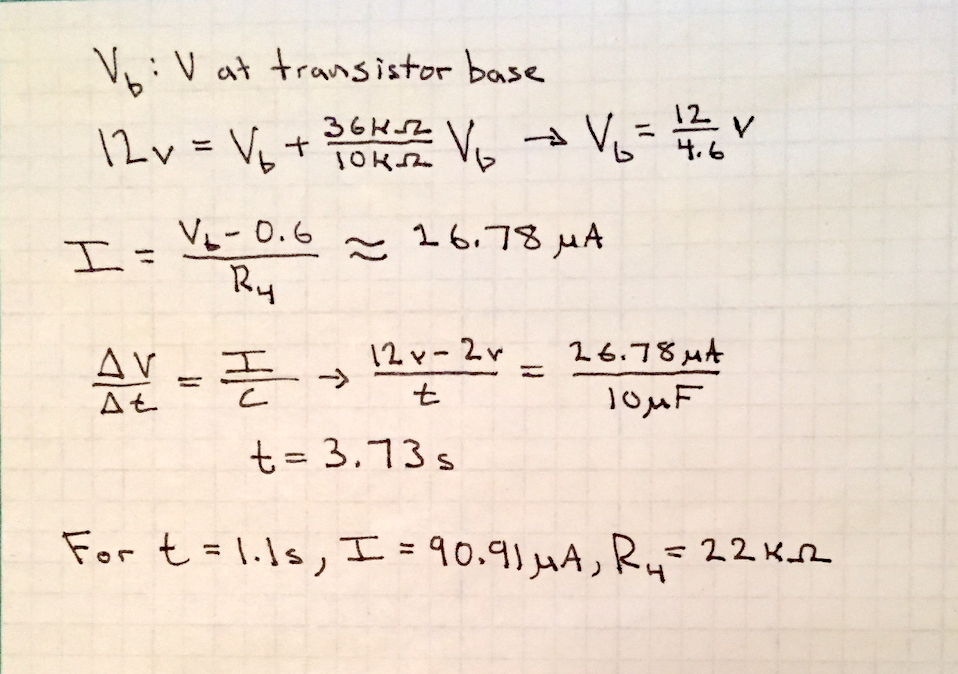 V_b: V at transistor base
12v = V_b + 36KΩ/10KΩ V_b → V_b = 12/4.6 v
I = (V_b - 0.6)/R_4 ≈ 26.78 μA
ΔV/Δt = I/C → (12v - 2v)/t = 26.78 μA/10μF
t = 3.73 s
For t = 1.1s, I = 90.91μA, R_4 = 22KΩ